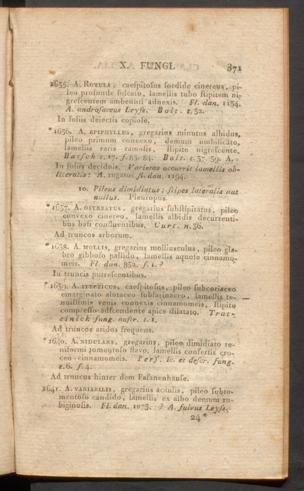 X. FUNGI. 371
1635. A. ROTULA; caespitosus sordide cinereus, pi-
leo profunde sulcato, lamellis tubo stipitem ni-
grescentem ambienti adnexis. Fl. dan. 1134.
A. androsaceus Leyss. Bolt. t. 32.
In foliis deiectis copiose.
*1636. A. EPIPHYLLUS, gregarius minutus albidus,
pileo primum convexo, demum umbilicato,
lamellis raris ramosis, stipite nigrescente.
Batsch t. 17. f. 83. 84. Bolt. t. 37. 39. A.
In foliis deciduis. Varietas occurrit lamellis ob-
litteratis: A. rugatus, fl. dan. 1194.
10. Pileus dimidiatus; stipes lateralis aut
nullus. Pleuropus.
*1637. A. OSTREATUS, gregarius substipitatus, pileo
convexo cinereo, lamellis albidis decurrenti-
bus basi confluentibus. Curt. n. 56.
Ad truncos arborum.
*1638. A. MOLLIS, gregarius molliusculus, pileo gla-
bro gibboso pallido, lamellis aquose cinnamo-
meis. Fl. dan. 852. f. 1. ?
In truncis putrescentibus.
*1639. A. STYPTICUS, caespitosus, pileo subcoriaceo
emarginato alutaceo subfarinaceo, lamellis te-
nuissimis venis connexis cinnamomeis, stipite
compresso adscendente apice dilatato. Trat-
tinick fung. austr. t. 1.
Ad truncos aridos frequens.
*1640. A. NIDULANS, gregarius, pileo dimidiato re-
niformi tomentoso flavo, lamellis confertis cro-
ceo-cinnamomeis. Pers. ic. et descr. fung.
t. 6. f. 4.
Ad truncos hinter dem Fasanenhause.
1641. A. VARIABILIS, gregarius acaulis, pileo subto-
mentoso candido, lamellis ex albo demum ru-
biginosis. Fl. dan. 1073. ? A. fulvus Leyss.
24*